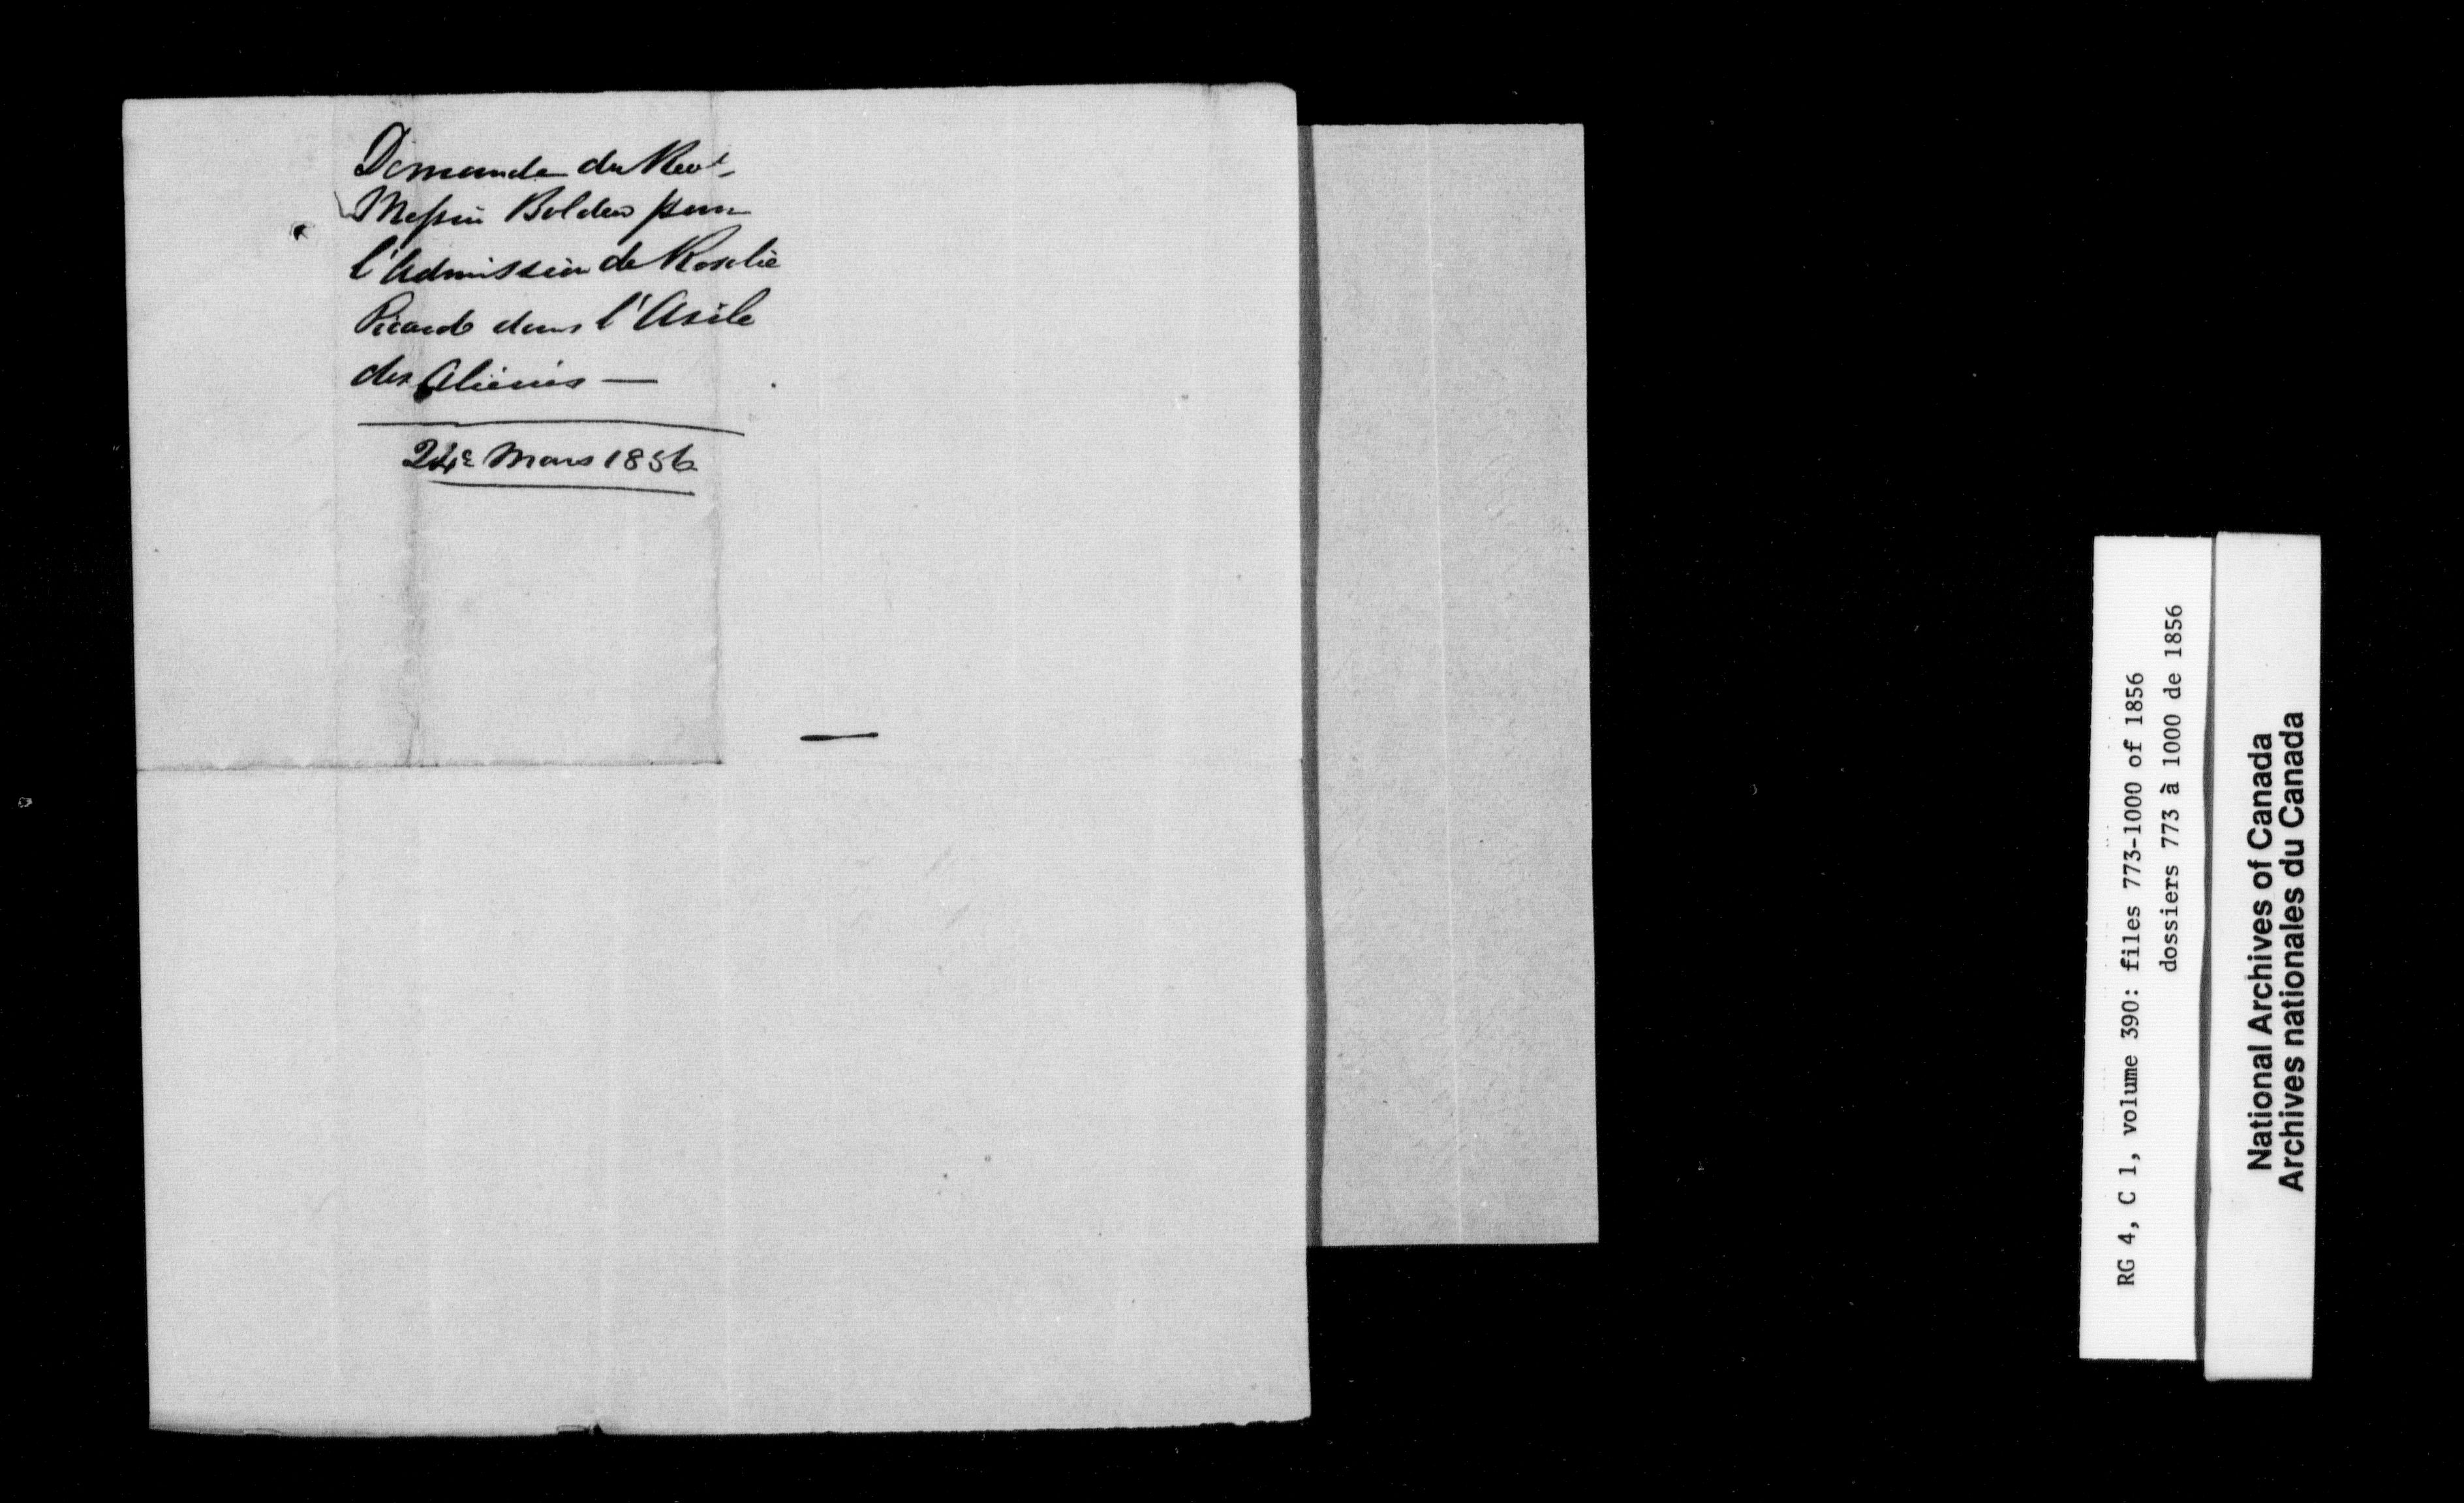 Demande du Revd.
Messire Bolduc pour
l'Admission de Roselie
Picard dans l'Asile
des Aliénés —
24e Mars 1856
RG 4, C 1, volume 390: files 773-1000 of 1856
dossiers 773 à 1000 de 1856
National Archives of Canada
Archives nationales du Canada